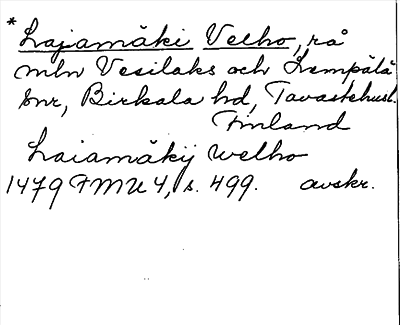 * Lajamäki Velho, rå
mln Vesilaks och Lempälä
snr, Birkala hd, Tavastehusl.
Finland
Laiamäkij Welho
1479 FMU 4, s. 499. avskr.